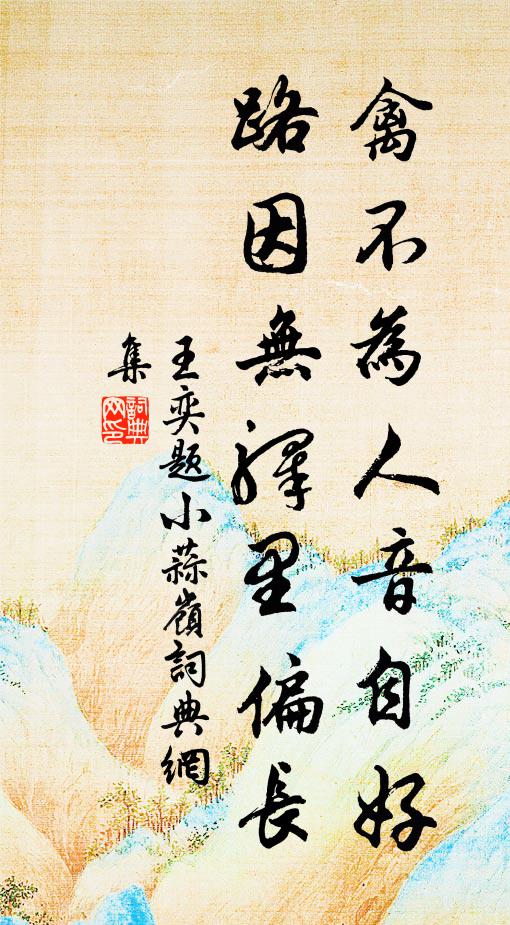 禽不為人音自好
路因無驛里偏長
王奕題小蒜嶺詞典網
集
詞典
网印